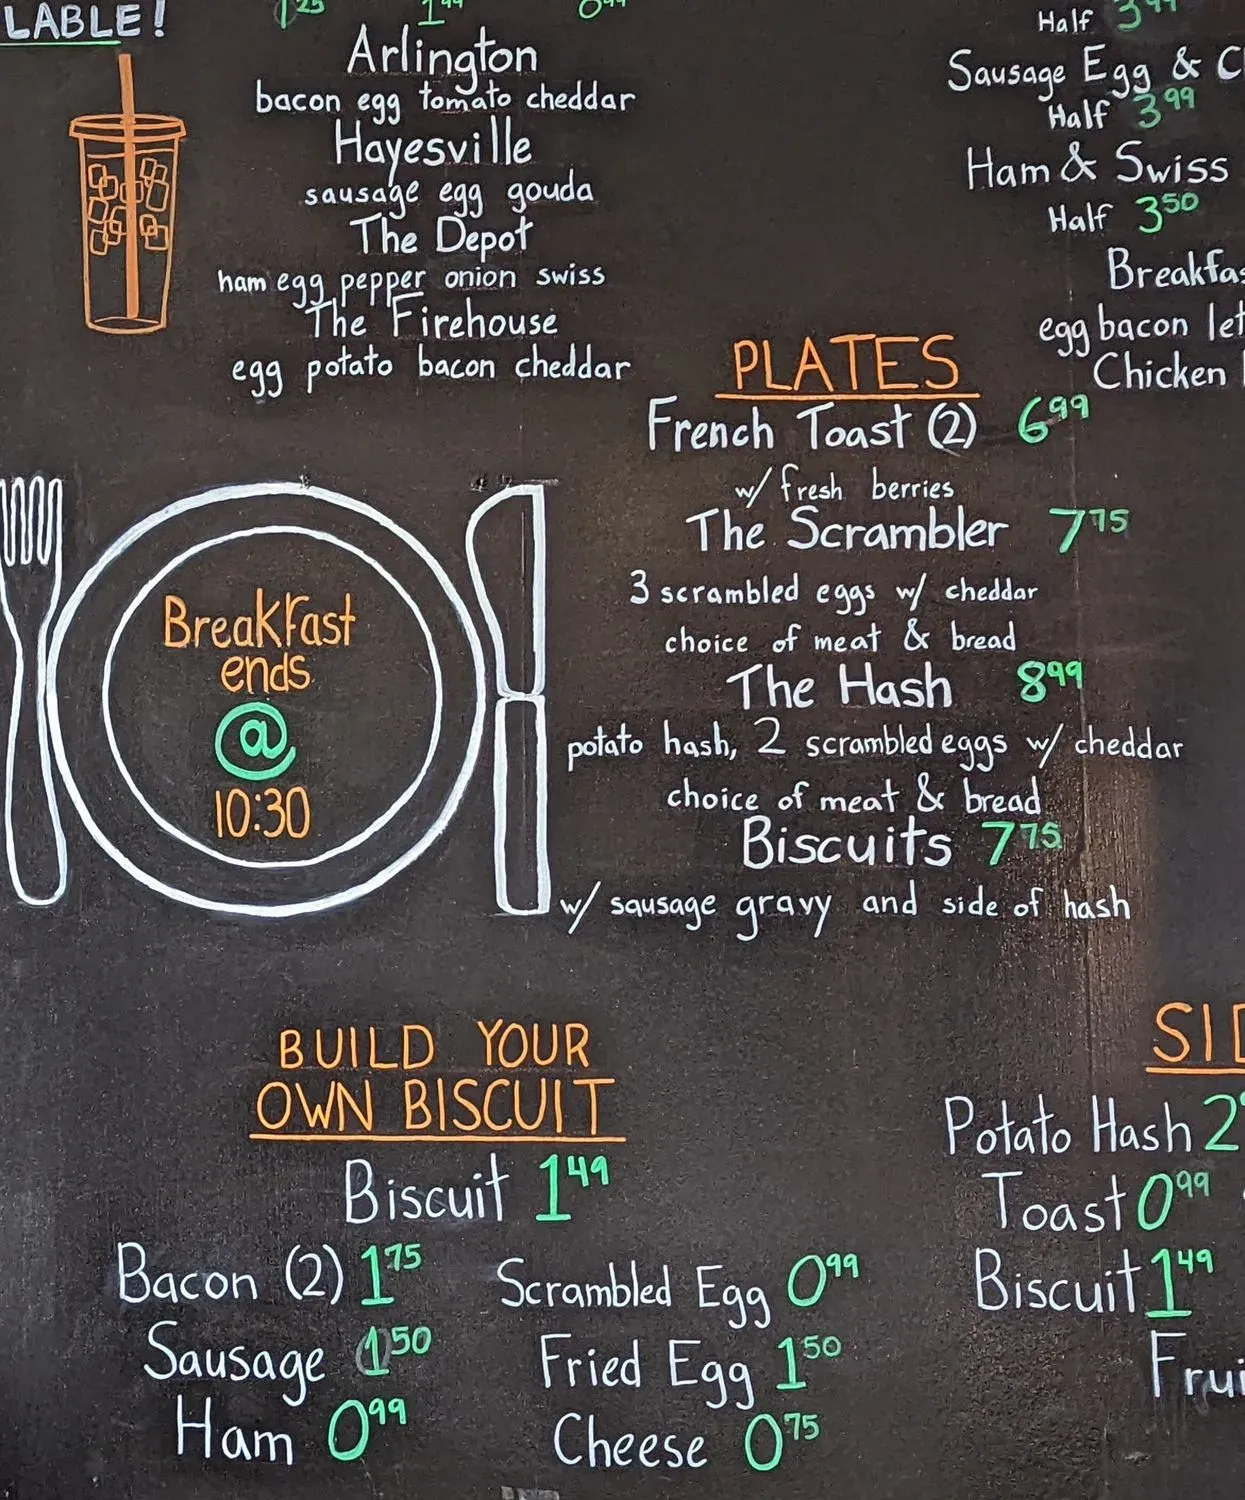 LABLE!
1.25 1.99
Arlington
bacon egg tomato cheddar
Hayesville
sausage egg gouda
The Depot
ham egg pepper onion swiss
The Firehouse
egg potato bacon cheddar
Half 3.99
Sausage Egg &
Half 3.99
Ham & Swiss
Half 3.50
egg bacon
Chicken
PLATES
French Toast (2) 6.99
w/ fresh berries
The Scrambler 7.75
3 scrambled eggs w/ cheddar
choice of meat & bread
The Hash 8.99
potato hash, 2 scrambled eggs w/ cheddar
choice of meat & bread
Biscuits 7.75
w/ sausage gravy and side of hash
Breakfast
ends
@
10:30
BUILD YOUR
OWN BISCUIT
Biscuit 1.49
Bacon (2) 1.75
Sausage 1.50
Ham 0.99
Scrambled Egg 0.99
Fried Egg 1.50
Cheese 0.75
Potato Hash 2
Toast 0.99
Biscuit 1.49